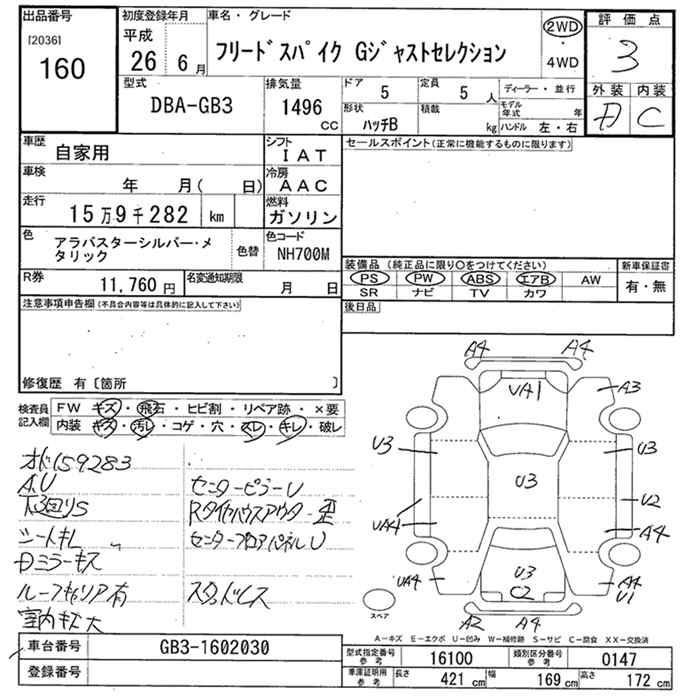 出品番号
[2036]
160
初度登録年月
平成
26 6月
車名・グレード
フリードスパイク Gジャストセレクション
2WD
・
4WD
評価点
3
外装 内装
D C
型式
DBA-GB3
排気量
1496
CC
ドア
5
定員
5 人
ディーラー・並行
形状
ハッチB
積載
kg
モデル年式 年
ハンドル 左・右
車歴
自家用
シフト
IAT
車検
年 月( 日)
冷房
AAC
走行
15万9千282 km
燃料
ガソリン
色
アラバスターシルバー・メタリック
色替
色コード
NH700M
R券
11,760円
名変通知期限
月 日
セールスポイント(正常に機能するものに限ります)
装備品(純正品に限り○をつけてください)
PS PW ABS エアB AW
SR ナビ TV カワ
新車保証書
有・無
後日品
注意事項申告欄(不具合内容等は具体的に記入して下さい)
修復歴 有〔箇所 〕
検査員記入欄
FW キズ・飛石・ヒビ割・リペア跡・×要
内装 キズ・汚レ・コゲ・穴・スレ・キレ・破レ
オド159283
A.U
下回りS
シートキレ
Dミラーキズ
ルーフキャリア有
室内キズ大
センターピラーU
Rタイヤハウスアウター歪
センターフロアパネルU
スタッドレス
A4 A4
UA1
A3
U3 U3
U3
U2
UA4 A4
U3
C2
UA4 A4
U1
A2 A4
スペア
A−キズ E−エクボ U−凹み W−補修跡 S−サビ C−腐食 XX−交換済
車台番号
GB3-1602030
登録番号
型式指定番号
参考
16100
類別区分番号
参考
0147
車庫証明用
参考
長さ 421 cm
幅 169 cm
高さ 172 cm